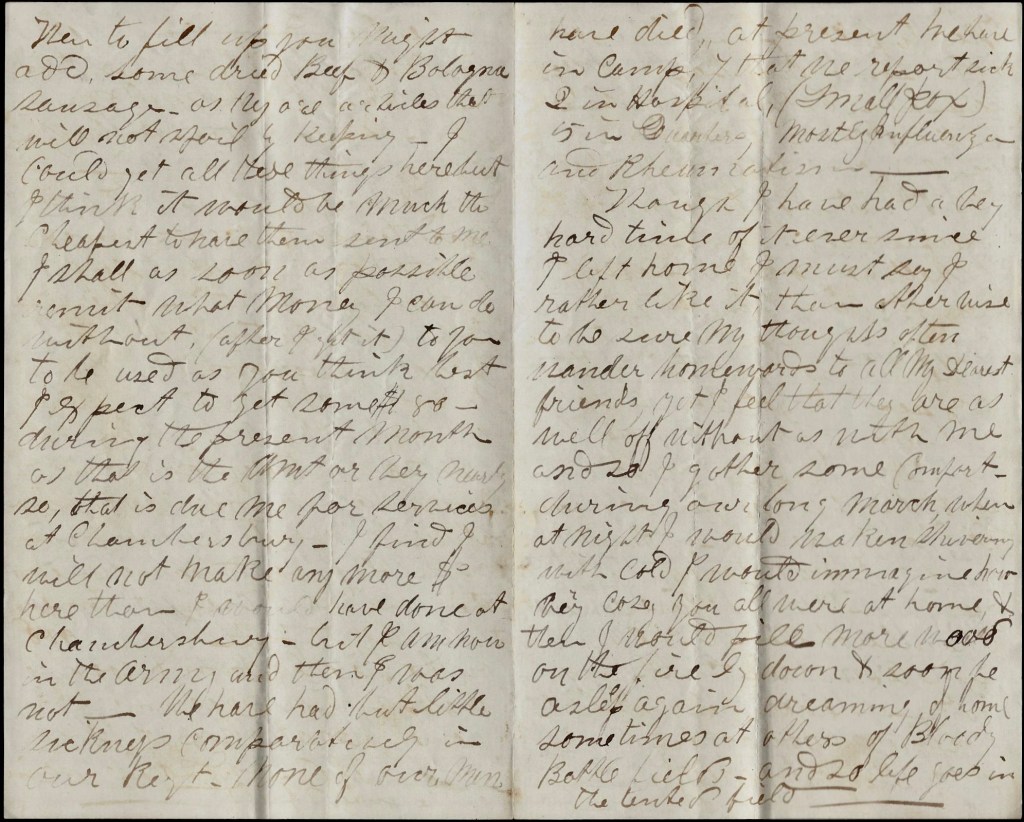 Then to fill up you Might
add, some dried Beef & Bologna
sausage - as they are articles that
will not spoil by keeping - I
could get all these things here but
I think it would be Much the
Cheapest to have them sent to me.
I shall as soon as possible
remit what Money I can do
without, (after I get it) to you
to be used as you think best
I expect to get some $
during the present Month
as that is the Amt or very nearly
so, that is due me for services
at Chambersburg - I find I
will not make any more $
here than I would have done at
Chambersburg - but I am now
in the Army and then I was
not - We have had but little
sickness comparatively in
our Regt - None of our Men
have died, at present we have
in Camp, that we report sick
2 in Hospital, (Small pox)
15 in Quarters, Mostly Influenza
and Rheumatism -
Though I have had a very
hard time of it ever since
I left home I must say I
rather like it than otherwise
to be sure My thoughts often
wander homewards to all My Dearest
friends, yet I feel that they are as
well off without as with me
and so I gather some Comfort -
during our long March when
at night I would waken Shivering
with Cold I would immagine how
very cozy you all were at home, &
then I would pile more wood
on the fire ly down & soon be
asleep again dreaming of home
sometimes at others of Bloody
Battle fields - and so life goes in
the tented field